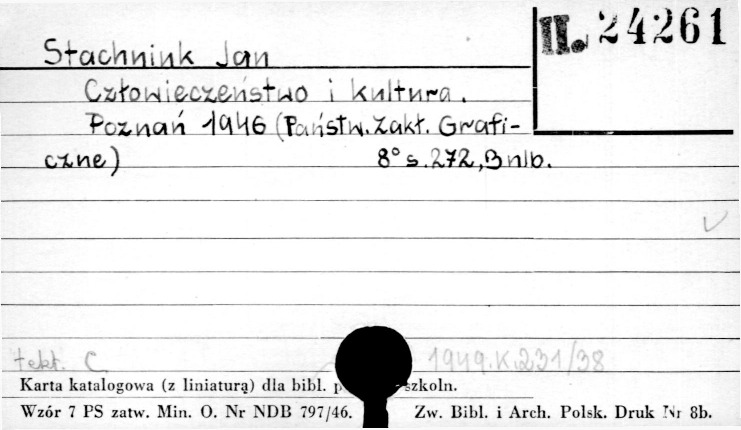 II. 24261
Stachniuk Jan
Człowieczeństwo i kultura.
Poznań 1946 (Państw. Zakł. Grafi-
czne) 8° s. 272, 3 nlb.
tekt. C 1949.K.231/38
Karta katalogowa (z liniaturą) dla bibl. szkoln.
Wzór 7 PS zatw. Min. O. Nr NDB 797/46. Zw. Bibl. i Arch. Polsk. Druk Nr 8b.